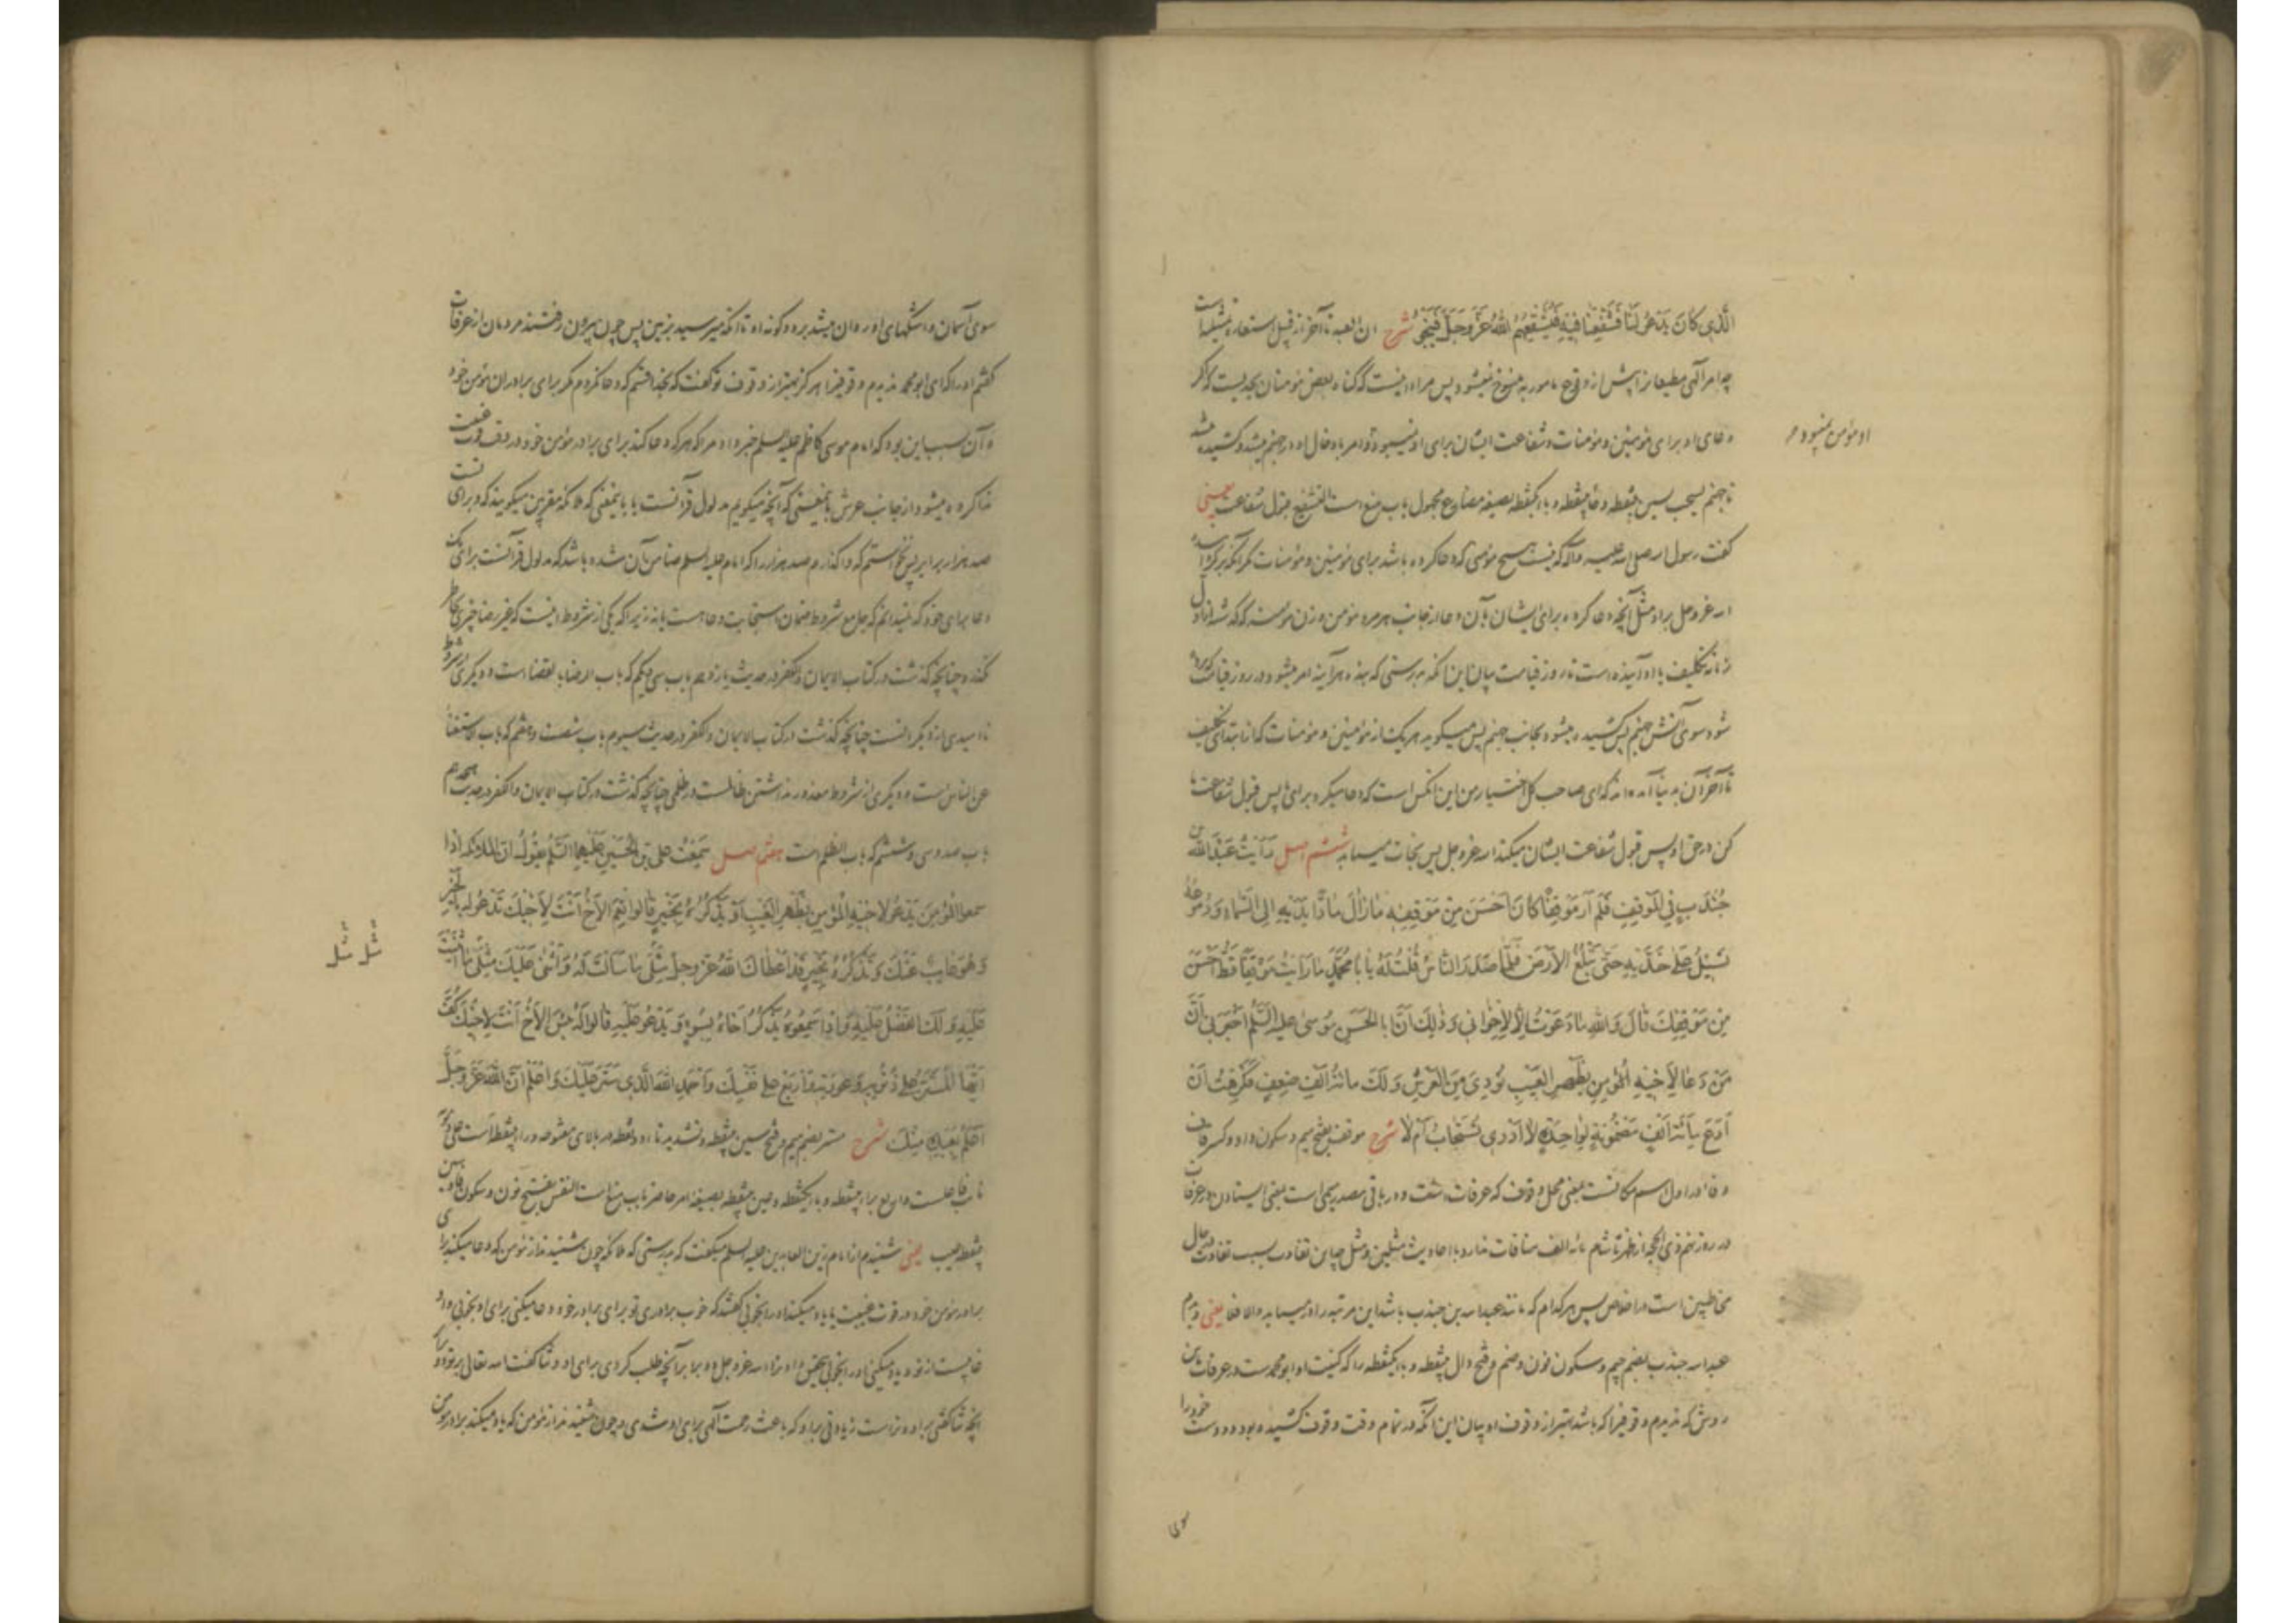 الَّذِی کَانَ یَدعُو لَنَا فَشَفِّعنَا فِیهِ فَیُشَفِّعُهُمُ اللهُ عَزَّ وَجَلَّ فَیَنجُو شرح ان العبد تا آخر از قبیل استعاره تمثیلیه است
چه امر الهی مطیعانرا پیش از وقوع مامور به منسوخ نمیشود پس مراد اینست که گناه بعض مومنان بحدیست که اگر
دعای او برای مومنین و مومنات و شفاعت ایشان برای او نمیبود او امر بادخال او در جهنم میشد و کشیده میشد
او مومن نمیبود
تا جهنم یسحب بسین بینقطه و حا بینقطه و با یکنقطه بصیغه مضارع مجهول باب منع است التشفیع قبول شفاعت یعنی
گفت رسول الله صلی الله علیه و آله که نیست هیچ مومنی که دعا کرده باشد برای مومنین و مومنات مگر آنکه برگرداند
الله عز و جل بر او مثل آنچه دعا کرده برای ایشان بآن دعا از جانب هر مرد مومن و زن مومنه که گذشته از اول
زمانه تکلیف یا او آینده است تا روز قیامت بیان این آنکه بدرستی که بنده هر آینه امر میشود در روز قیامت که برده
شود سوی آتش جهنم پس کشیده میشود بجانب جهنم پس میگوید هر یک از مومنین و مومنات که از ابتدای تکلیف
تا آخر آن بدنیا آمده اند که ای صاحب کل اختیار من این آنکس است که دعا میکرد برای ما پس قبول شفاعت ما
کن در حق او پس قبول شفاعت ایشان میکند الله عز و جل پس نجات میابد ششم اصل رَاَیتُ عَبدَ اللهِ بن
جُندَبٍ فِی المَوقِفِ فَلَم اَرَ مَوقِفًا کَانَ اَحسَنَ مِن مَوقِفِهِ مَا زَالَ مَادًّا یَدَیهِ اِلَی السَّمَاءِ وَدُمُوعُهُ
تَسِیلُ عَلی خَدَّیهِ حَتّی تَبلُغَ الاَرضَ فَلَمَّا صَدَرَ النَّاسُ قُلتُ لَهُ یَا اَبَا مُحَمَّدٍ مَا رَاَیتُ مَوقِفًا قَطُّ اَحسَنَ
مِن مَوقِفِکَ قَالَ وَاللهِ مَا دَعَوتُ اِلَّا لِاِخوَانِی وَذلِکَ اَنَّ اَبَا الحَسَنِ مُوسی علیه السَّلم اَخبَرَنِی اَنَّ
مَن دَعَا لِاَخِیهِ المُؤمِنِ بِظَهرِ الغَیبِ نُودِیَ مِنَ العَرشِ وَلَکَ مائة اَلفِ ضِعفٍ فَکَرِهتُ اَن
اَدَعَ مِائَةَ اَلفٍ مَضمُونَةٍ لِوَاحِدَةٍ لَا اَدرِی تُستَجَابُ اَم لَا شرح موقف بفتح میم و سکون واو و کسر قاف
و فا در اول اسم مکانست بمعنی محل وقوف که عرفات است و در باقی مصدر میمی است بمعنی ایستادن در عرفات
در روز نهم ذی الحجه از ظهر تا شام مائه الف منافات ندارد با احادیث مثلین و مثل چه این تفاوت بسبب تفاوت حال
مخاطبین است در اخلاص پس هر کدام که مانند عبد الله بن جندب باشد این مرتبه را در میابد والا فلا یعنی دیدم
عبد الله جندب بضم جیم و سکون نون و ضم و فتح دال بینقطه و با یکنقطه را که کنیت او ابو محمد ست در عرفات باین
روش که ندیدم وقوفیرا که باشد بهتر از وقوف او بیان این آنکه در تمام وقت وقوف کشیده بود دو دست خود را
سوی
سوی آسمان و اشکهای او روان میشد بر دو گونه او تا آنکه میرسید بزمین پس چون بیرون رفتند مردمان از عرفات
گفتم او را که ای ابو محمد ندیدم وقوفیرا هرگز بهتر از وقوف تو گفت که بخدا قسم که دعا نکردم مگر برای برادران مومن خود
و آن بسبب این بود که امام موسی کاظم علیه السلم خبر داد مرا که هر که دعا کند برای برادر مومن خود در وقت غیبت
ندا کرده میشود از جانب عرش بمعنی که آنچه میگویم مدلول قرآنست یا باینمعنی که ملائکه مقربین میگویند که و برای تست
صد هزار برابر پس نخواستم که واگذارم صد هزار را که امام علیه السلم ضامن آن شده باشد که مدلول قرآنست برای یک
دعا برای خود که نمیدانم که جامع شروط ضمان استجابت دعا هست یا نه زیرا که یکی از شروط اینست که غیر رضا چیزی بخاطر
نگذرد چنانچه گذشت در کتاب الایمان والکفر در حدیث یازدهم باب سی و یکم که باب الرضا بالقضا است و دیگری از شروط
نا امیدی از دیگرانست چنانچه گذشت در کتاب الایمان والکفر در حدیث سیوم باب شصت و هفتم که باب الاستغنا
عن الناس است و دیگری از شروط معذور نداشتن ظالمست در ظلمی چنانچه گذشت در کتاب الایمان والکفر در حدیث هجدهم
باب صد و سی و ششم که باب الظلم است هفتم اصل سَمِعتُ علی بن الحُسَینِ عَلَیهِمَا السَّلمُ یقُولُ اِنَّ المَلائِکَةَ اِذا
سمعوا المُؤمِنَ یَدعُو لِاَخِیهِ المُؤمِنِ بِظَهرِ الغَیبِ اَو یَذکُرُهُ بِخَیرٍ قَالُوا نِعمَ الاَخُ اَنتَ لِاَخِیکَ تَدعُو لَهُ بِالخَیرِ
وَهُوَ غَایِبٌ عَنکَ وَتَذکُرُهُ بِخَیرٍ قَد اَعطَاکَ اللهُ عَزَّ وَجلَّ مِثلَی مَا سَاَلتَ لَهُ وَاَثنی عَلَیکَ مِثلَی مَا اَثنَیتَ
مثل مثل
عَلَیهِ وَلَکَ الفَضلُ عَلَیهِ وَاِذَا سَمِعُوهُ یَذکُرُ اَخَاهُ بِسُوءٍ وَیَدعُو عَلَیهِ قَالُوا لَهُ بِئسَ الاَخُ اَنتَ لِاَخِیکَ کُفَّ
اَیُّهَا المُسَتَّرُ عَلی ذُنُوبِهِ وَعورَتِهِ وَاَربِع عَلی نَفسِکَ وَاَحمَدِ اللهَ الَّذِی سَتَرَ عَلَیکَ وَاعلَم اَنَّ اللهَ عَزَّ وَجَلَّ
اَعلَمُ بِعَبدِهِ مِنکَ شرح مستر بضم میم و فتح سین بینقطه و تشدید تاء دو نقطه در بالای مفتوحه و راء بینقطه است علی ذنوبه
نایب فاعلست و اربع براء بینقطه و باء یکنقطه و عین بینقطه بصیغه امر حاضر باب منع است النفس بفتح نون و سکون فا و سین
بینقطه عیب یعنی شنیدم از امام زین العابدین علیه السلم میگفت که بدرستی که ملائکه چون شنیدند از مومن که دعا میکند برای
برادر مومن خود در وقت غیبت یا یاد میکند او را بخوبی گفتند که خوب برادری تو برای برادر خود دعا میکنی برای او بخوبی و او
غایبست از تو و یاد میکنی او را بخوبی بتحقیق داد ترا الله عز و جل دو برابر آنچه طلب کردی برای او و ثنا گفت الله تعالی بر تو دو برابر
آنچه ثنا گفتی بر او و تراست زیادتی بر او که باعث رحمت الهی برای او شدی و چون شنیدند از مومن که یاد میکند برادر مومن